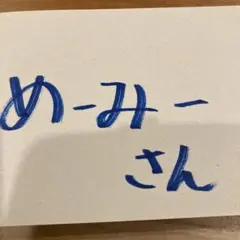 めーみー
さん